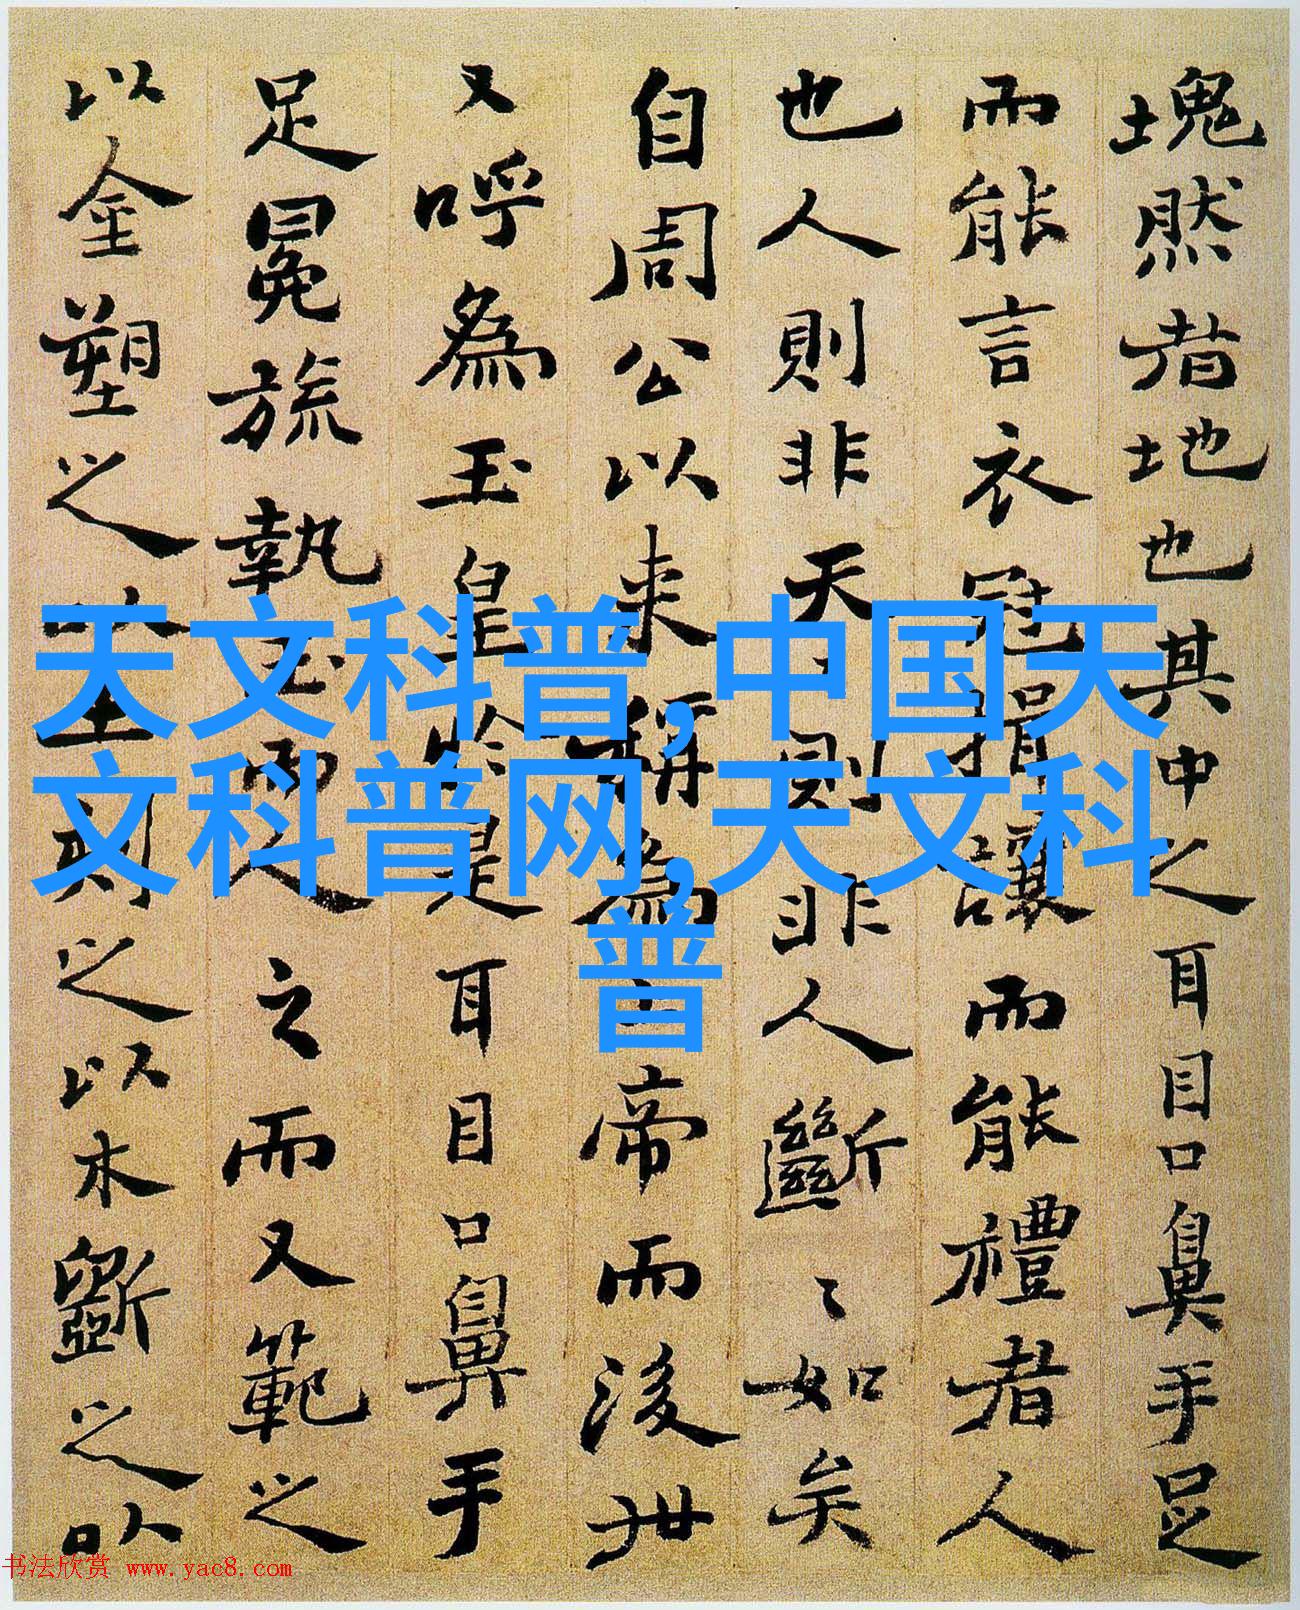 塊然者地也其中之耳目口鼻手足
而能言衣冠揖讓而能禮者人
也人則非天〻則非人斷〻如矣
自周公以来稱為上帝而後世
又呼為玉皇於是耳目口鼻手
足冕旒執玉而人之而又範之
以金塑之以土刻之以木斵之以
天文科普,中国天
文科普网,天文科
普
书法欣赏 www.yac8.com